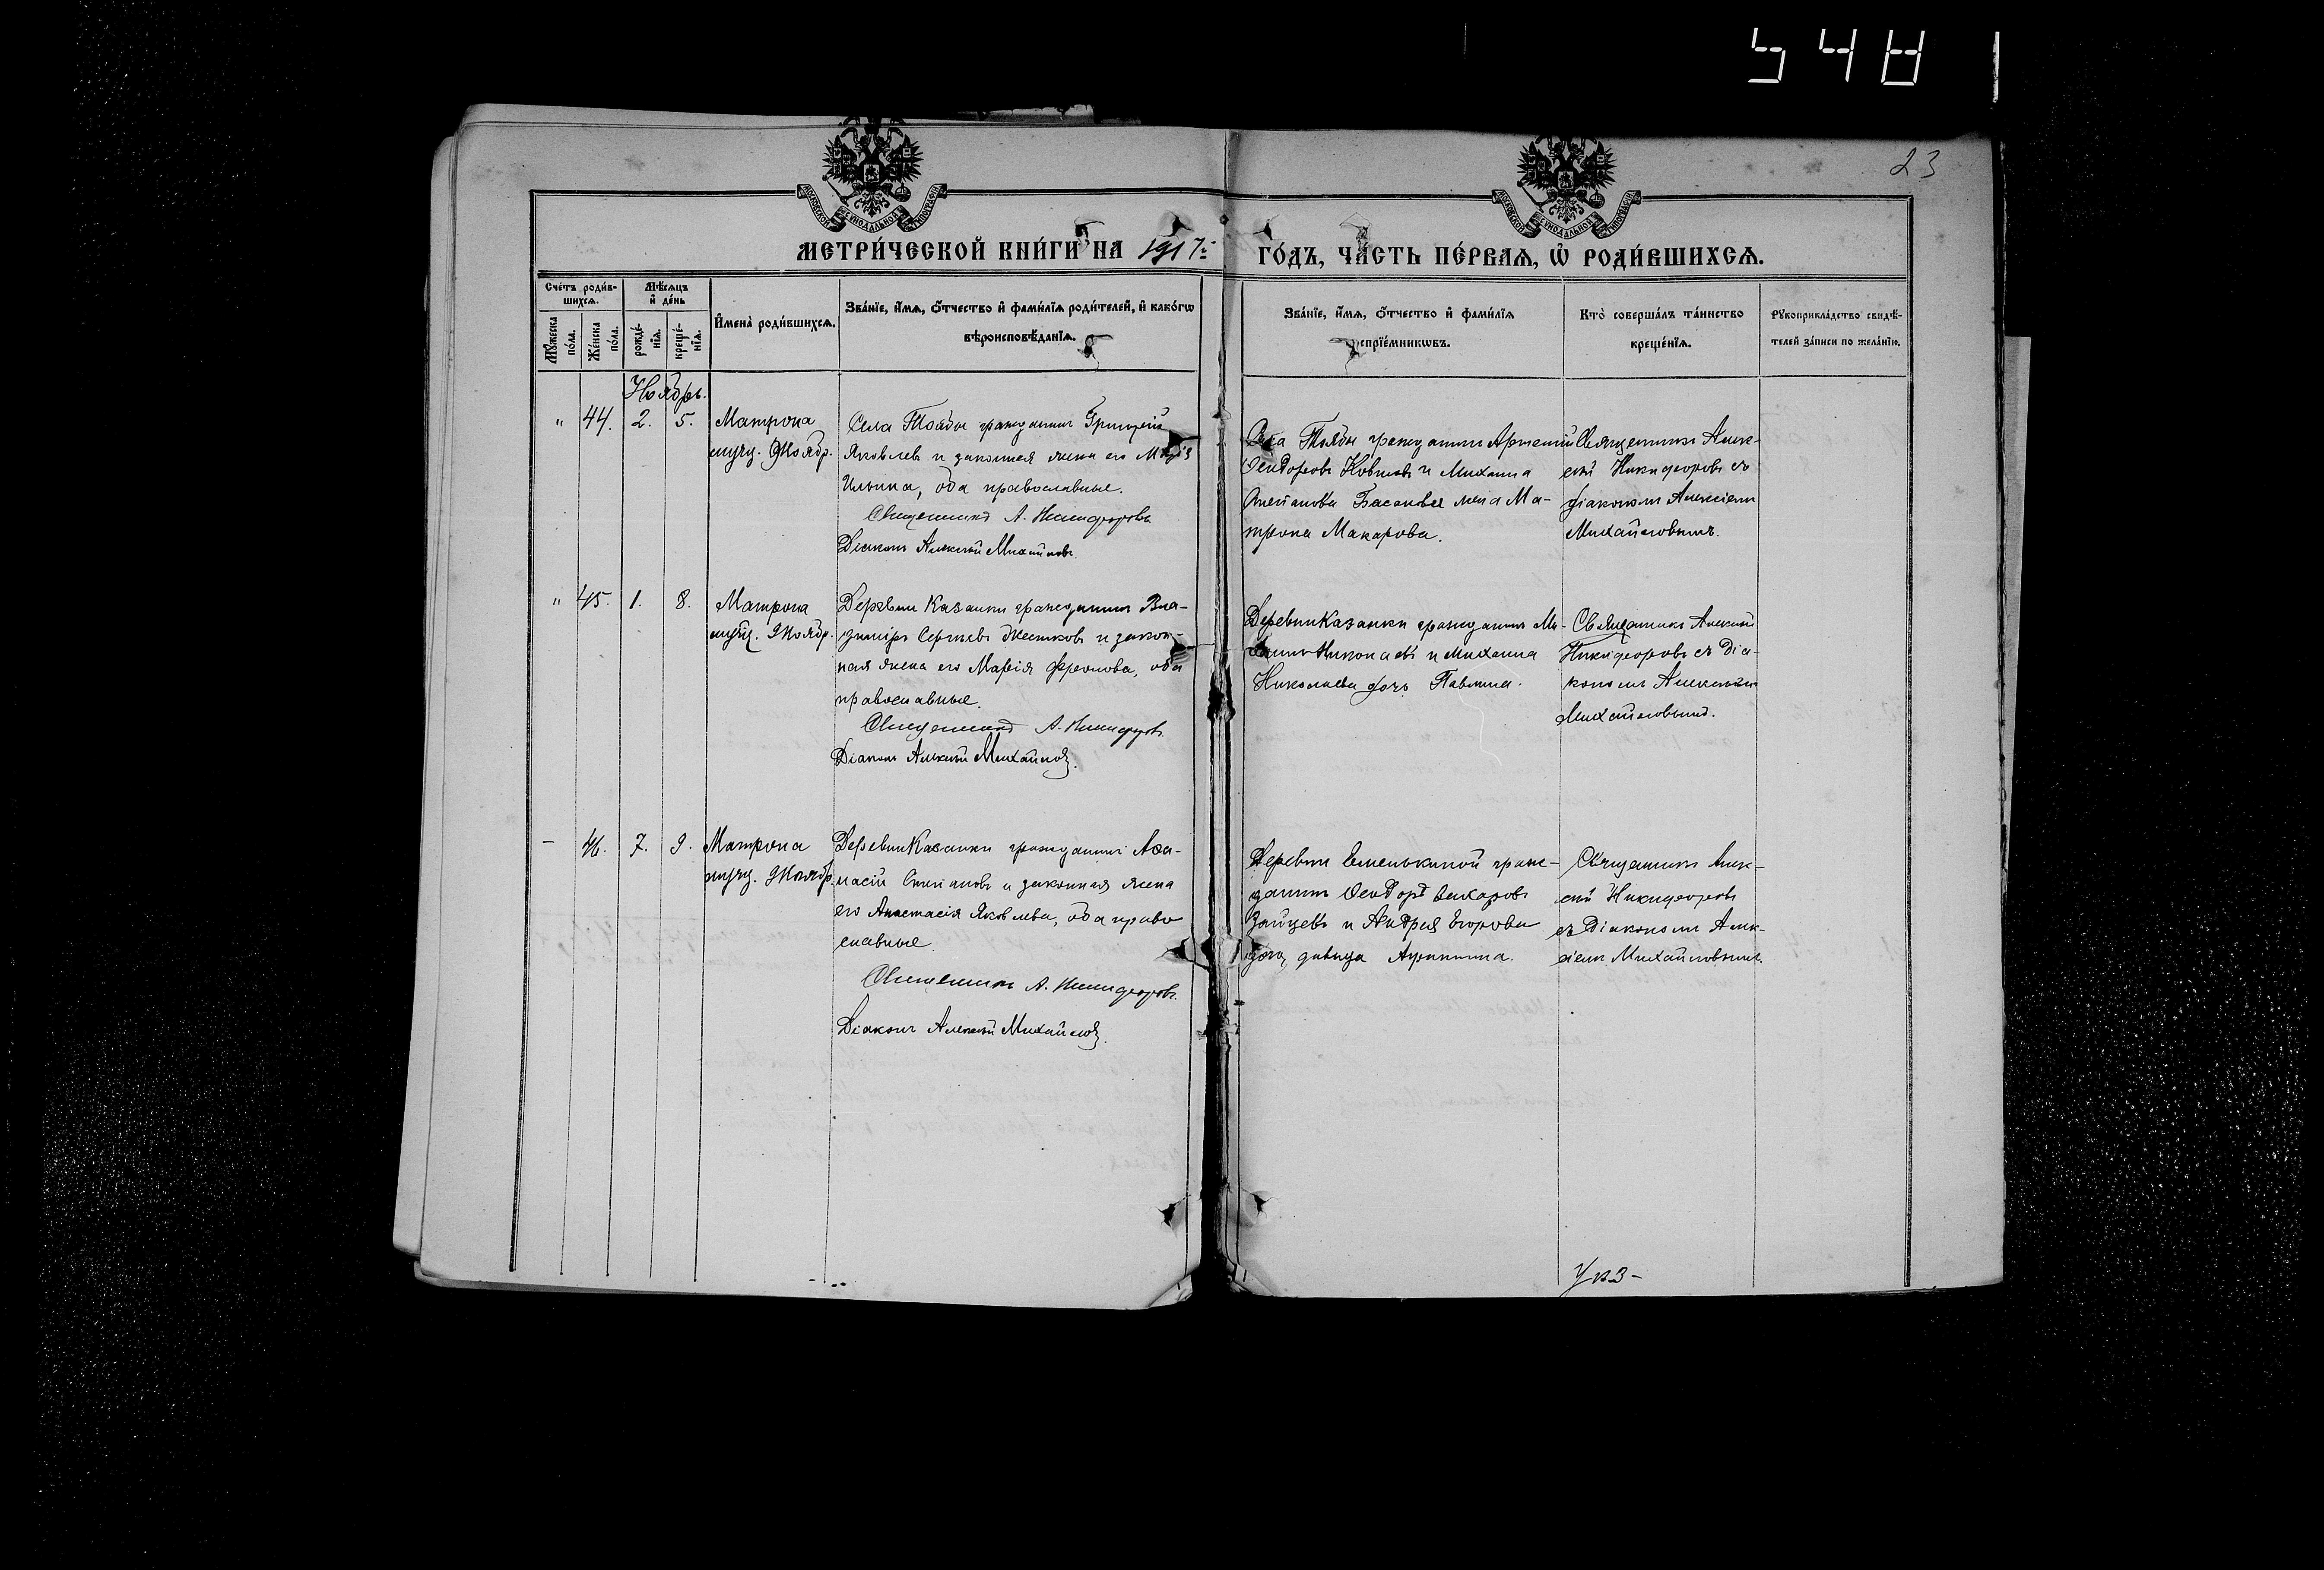 5481
23
МОСКОВСКОЙ СѴНОДАЛЬНОЙ ТИПОГРАФІИ
МОСКОВСКОЙ СѴНОДАЛЬНОЙ ТИПОГРАФІИ
МЕТРИ́ЧЕСКОЙ КНИ́ГИ НА 1917 г.
ГО́ДЪ, ЧА́СТЬ ПЕ́РВАѦ, Ѡ҆ РОДИ́ВШИХСѦ.
Сче́тъ роди́в-
шихсѧ.
Мѣ́сѧцъ
и҆ де́нь
Мꙋ́жеска
по́ла.
Же́нска
по́ла.
рожде́-
нїѧ.
креще́-
нїѧ.
И҆мена̀ роди́вшихсѧ.
Зва́нїе, и҆́мѧ, ѻ҆́тчество и҆ фами́лїѧ роди́телей, и҆ како́гѡ
вѣроисповѣ́данїѧ.
Зва́нїе, и҆́мѧ, ѻ҆́тчество и҆ фами́лїѧ
воспрїе́мникѡвъ.
Кто̀ соверша́лъ та́инство
креще́нїѧ.
Рꙋкоприкла́дство свидѣ́-
телей за́писи по жела́нїю.
Ноябрь.
"
44.
2.
5.
Матрона
муч. 9 Ноябр.
Села Тоябы гражданин Григорій
Яковлевъ и законная жена его Марія
Ильина, оба православные.
Священникъ А. Никифоровъ
Діаконъ Алексѣй Михайловъ.
Села Тоябы гражданин Арсеній
Ѳеодоровъ и Михаила
Степанова жена Ма-
трона Макарова.
Священникъ Алек-
сѣй Никифоровъ съ
діакономъ Алексіемъ
Михайловымъ.
"
45.
1.
8.
Матрона
муч. 9 Ноябр.
Деревни Казанки гражданинъ Вла-
диміръ Сергѣевъ и закон-
ная жена его Марія Фролова, оба
православные.
Священникъ А. Никифоровъ.
Діаконъ Алексѣй Михайловъ.
Деревни Казанки гражданинъ
и Михаила
Николаева дочь
Священникъ Алексѣй
Никифоровъ съ діа-
кономъ Алексіемъ
Михайловымъ.
-
46.
7.
9.
Матрона
муч. 9 Ноябр.
Деревни Казанки гражданинъ Аѳа-
насій Степановъ и законная жена
его Анастасія Яковлева, оба право
славные.
Священникъ А. Никифоровъ.
Діаконъ Алексѣй Михайловъ.
Деревни Емелькиной граж-
данинъ Ѳеодоръ Захаровъ
Зайцевъ и Андрея Егорова
дочь, дѣвица
Священникъ Алек-
сѣй Никифоровъ
съ Діакономъ Алек-
сіемъ Михайловымъ.